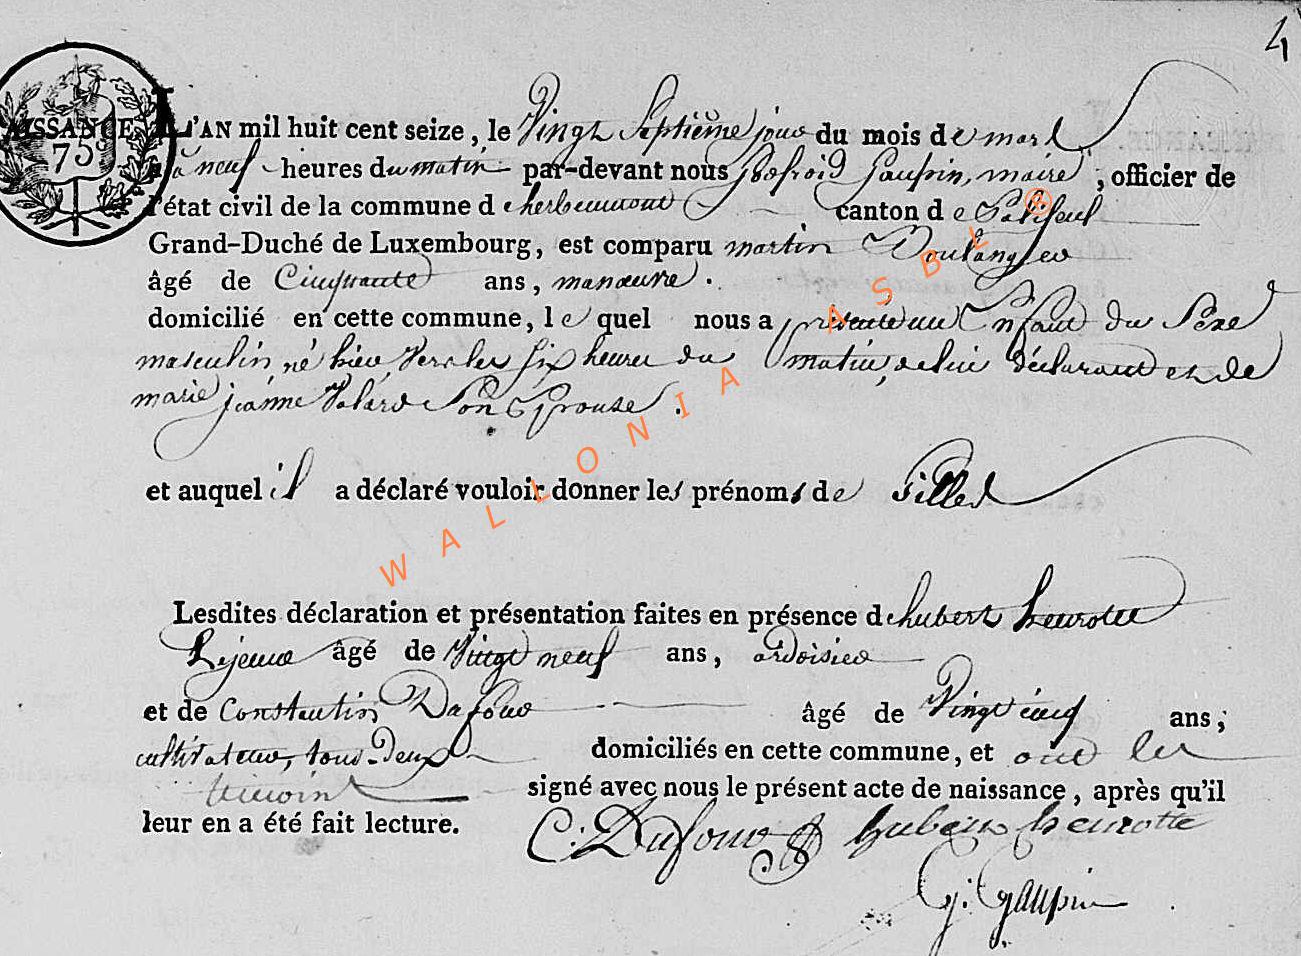 4
NAISSANCE.
75c
L'AN mil huit cent seize, le Vingt Septième jour du mois de mars
à neuf heures du matin par-devant nous godfroid Gaupin, maire, officier de
l'état civil de la commune d herbeumont canton de Paliseul
Grand-Duché de Luxembourg, est comparu martin Boulanger
âgé de Cinquante ans, manœuvre.
domicilié en cette commune, le quel nous a présenté un Enfant du Sexe
masculin, né hier, Vers les six heures du matin, de lui déclarant et de
marie jeanne Valard Son Epouse.
et auquel il a déclaré vouloir donner les prénoms de Gilles
Lesdites déclaration et présentation faites en présence de hubert heurotte
Lejeune âgé de Vingt neuf ans, ardoisier
et de Constantin Dufour âgé de Vingt cinq ans,
cultivateur, tous deux domiciliés en cette commune, et ont les
témoins signé avec nous le présent acte de naissance, après qu'il
leur en a été fait lecture.
C: Dufour hubert heurotte
G: Gaupin
WALLONIA ASBL ®